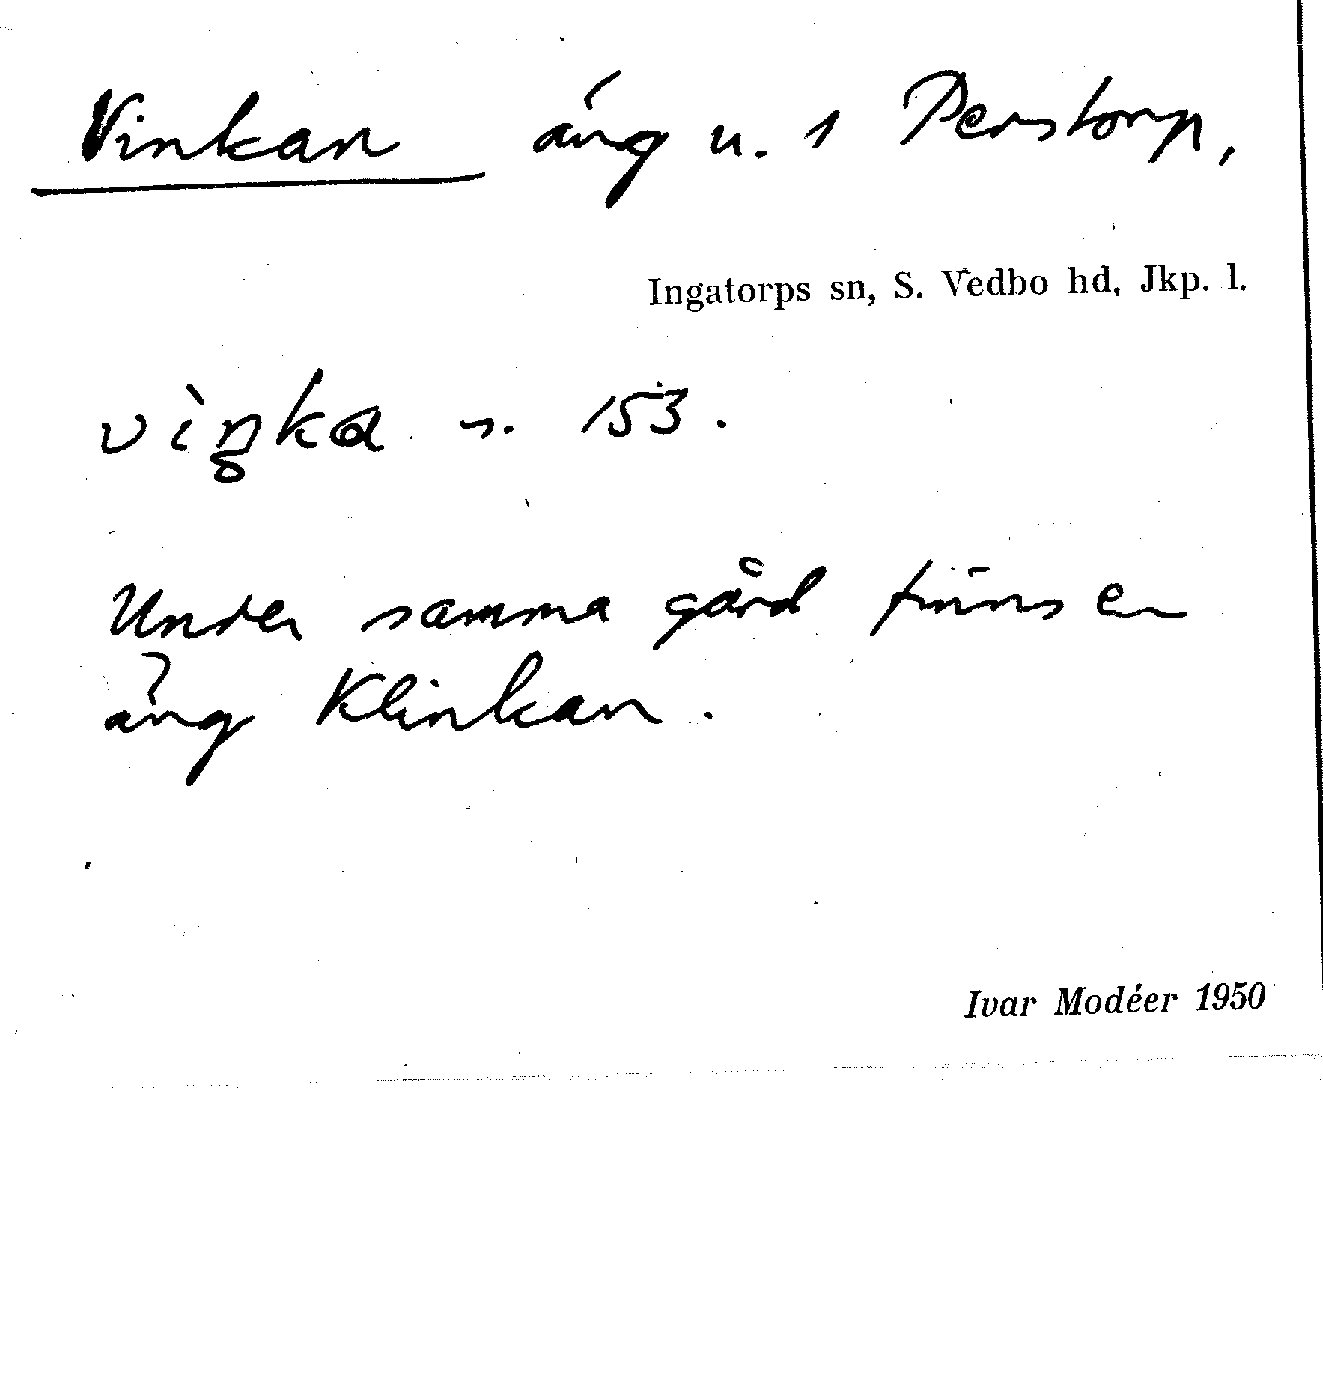 Vinkan äng u. 1 Perstorp,
Ingatorps sn, S. Vedbo hd, Jkp. l.
vìŋka s. 153.
Under samma gård finns en
äng Klinkan.
Ivar Modéer 1950